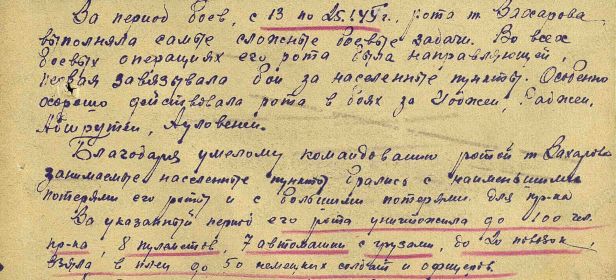 За период боев, с 13 по 25.1.45 г., рота т. Захарова
выполняла самые сложные боевые задачи. Во всех
боевых операциях его рота была направляющей,
первая завязывала бой за населенные пункты. Особенно
хорошо действовала рота в боях за Уоджей, Гаджей,
Ауловенен.
Благодаря умелому командованию ротой т. Захарова
занимаемые населенные пункты брались с наименьшими
потерями его роты и с большими потерями для пр-ка
За указанный период его рота уничтожила до 100 чел.
пр-ка, 8 пулеметов, 7 автомашин с грузами, до 20 повозок,
взяла в плен до 50 немецких солдат и офицеров.